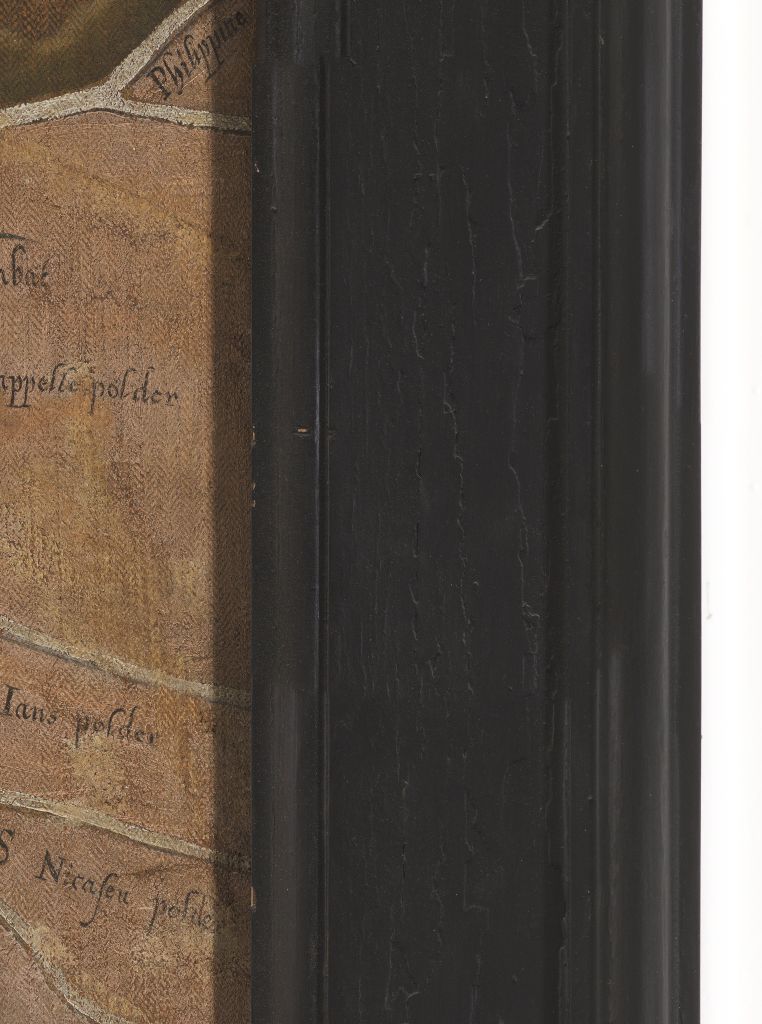 Philippine
appelle polder
Ians polder
S Nicasen polder